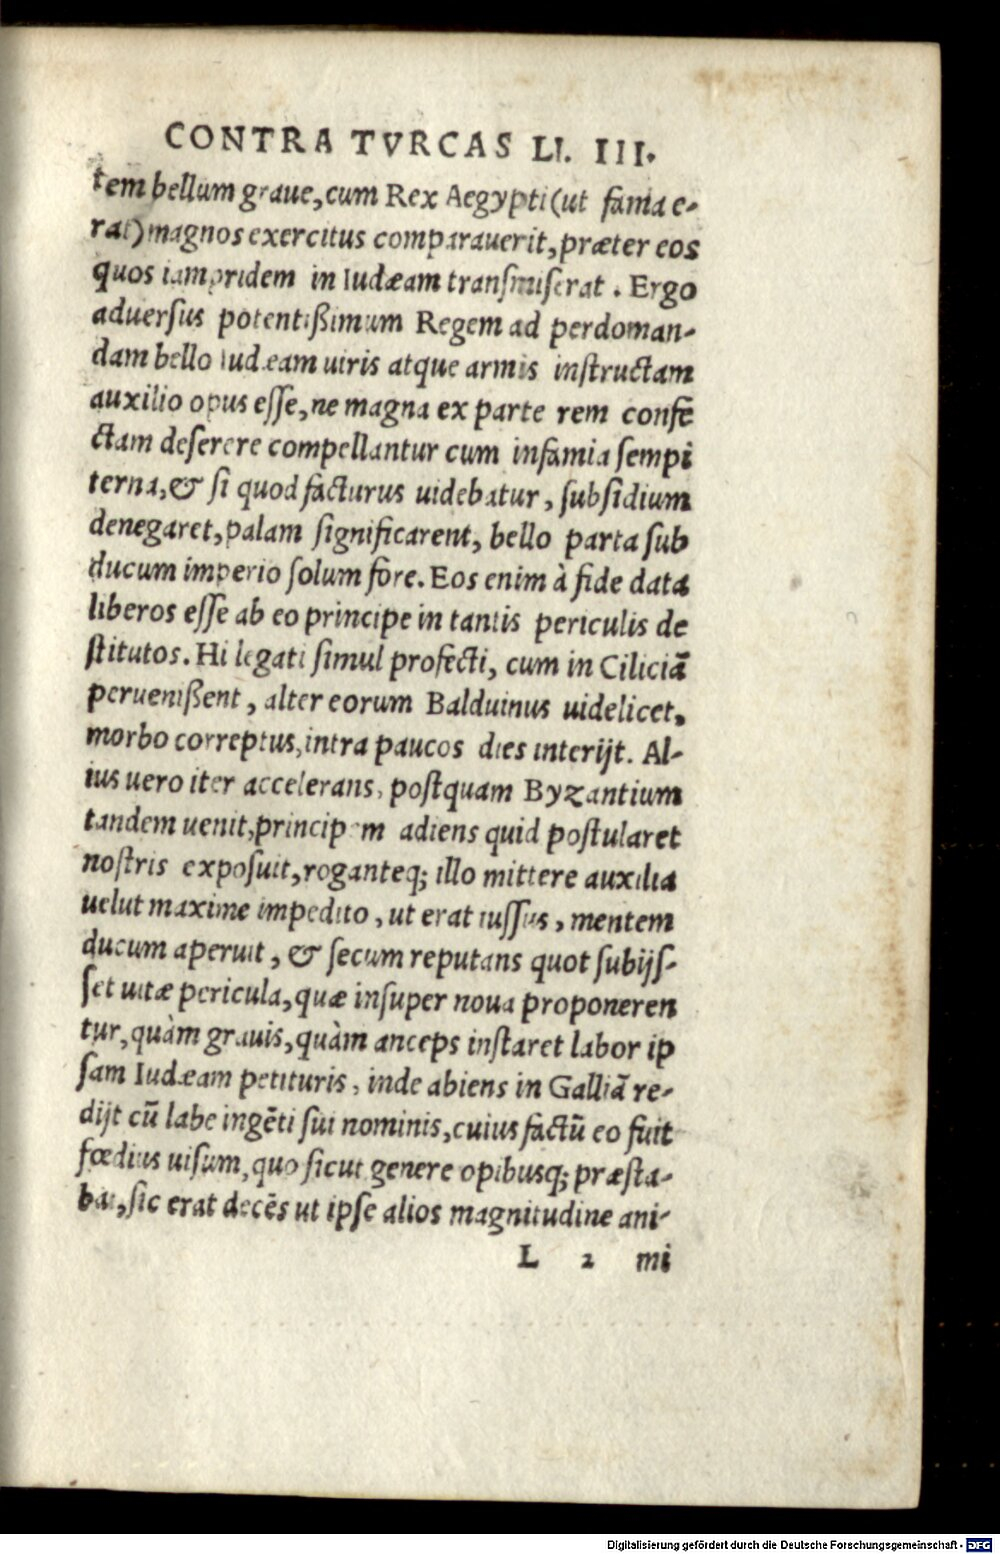 CONTRA TVRCAS LI. III.
tem bellum graue, cum Rex Aegypti (ut fama e-
rat) magnos exercitus comparauerit, præter eos
quos iampridem in Iudæam transmiserat. Ergo
aduersus potentißimum Regem ad perdoman-
dam bello Iudæam uiris atque armis instructam
auxilio opus esse, ne magna ex parte rem confe
ctam deserere compellantur cum infamia sempi
terna, & si quod facturus uidebatur, subsidium
denegaret, palam significarent, bello parta sub
ducum imperio solum fore. Eos enim à fide data
liberos esse ab eo principe in tantis periculis de
stitutos. Hi legati simul profecti, cum in Ciliciã
peruenißent, alter eorum Balduinus uidelicet,
morbo correptus, intra paucos dies interijt. Al-
ius uero iter accelerans, postquam Byzantium
tandem uenit, principem adiens quid postularet
nostris exposuit, roganteq; illo mittere auxilia
uelut maxime impedito, ut erat iussus, mentem
ducum aperuit, & secum reputans quot subijs-
set uitæ pericula, quæ insuper noua proponeren
tur, quàm grauis, quàm anceps instaret labor ip
sam Iudæam petituris, inde abiens in Galliã re-
dijt cũ labe ingẽti sui nominis, cuius factũ eo fuit
fœdius uisum, quo sicut genere opibusq; præsta-
bat, sic erat decẽs ut ipse alios magnitudine ani-
L 2 mi
Digitalisierung gefördert durch die Deutsche Forschungsgemeinschaft - DFG